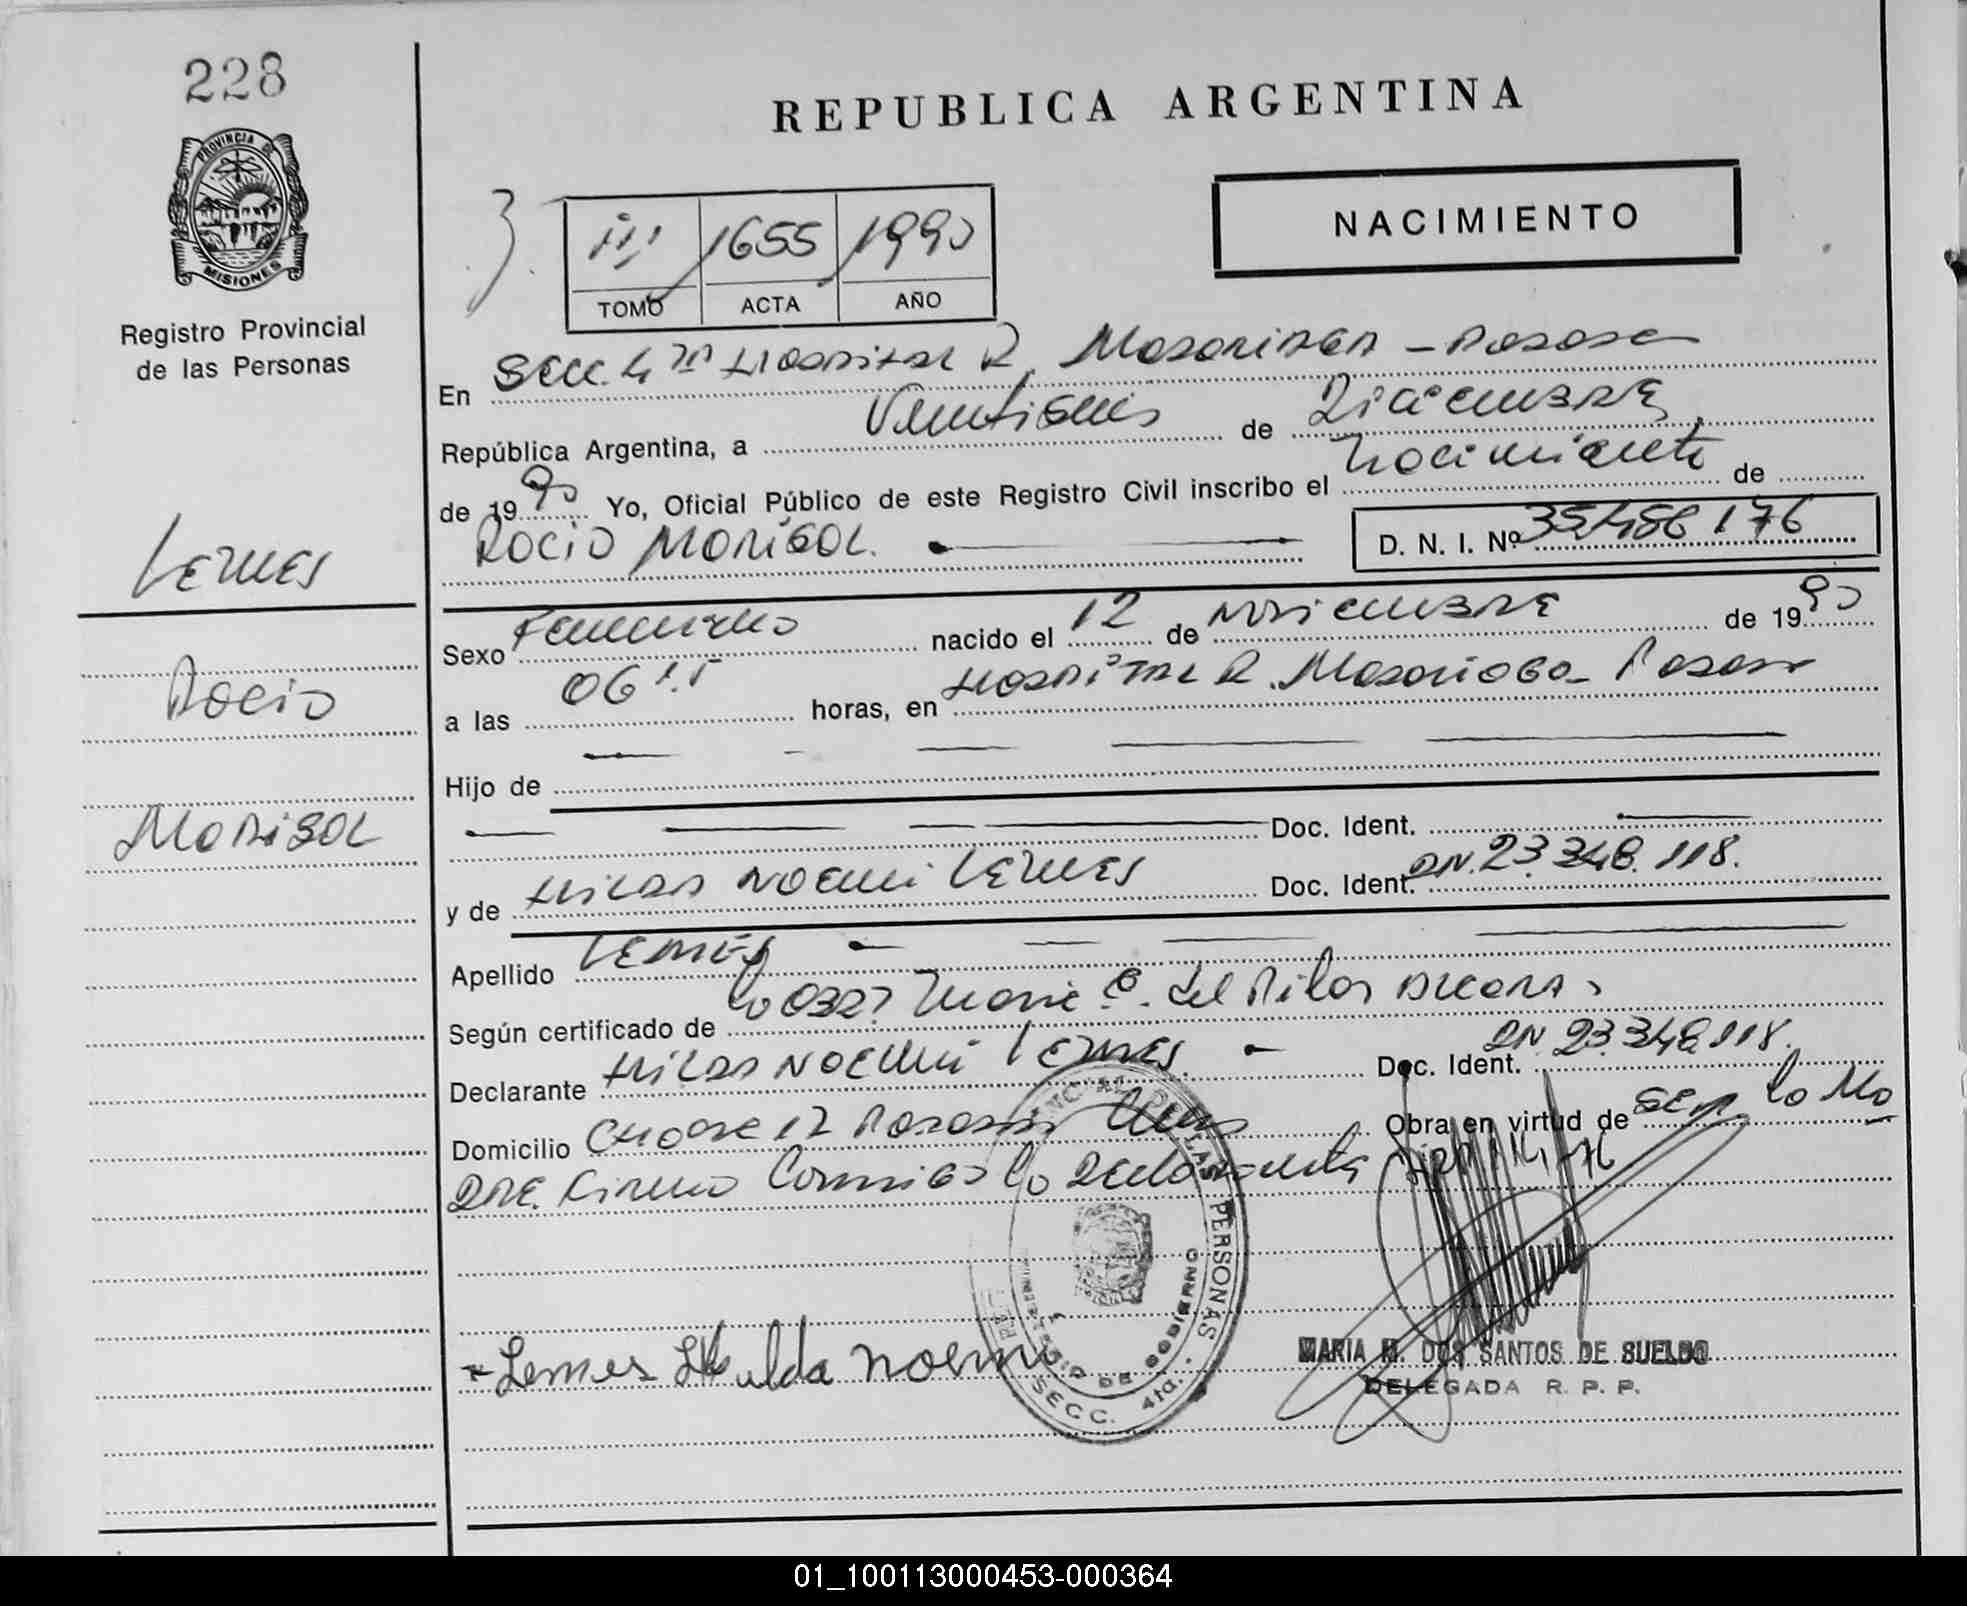 228
PROVINCIA DE
MISIONES
Registro Provincial
de las Personas
REPUBLICA ARGENTINA
NACIMIENTO
III 1655 1990
TOMO ACTA AÑO
En Secc. 4ta Hospital R. Madariaga - Posadas
República Argentina, a Veintiseis de Diciembre
de 1990 Yo, Oficial Público de este Registro Civil inscribo el Nacimiento de
Rocio Marisol. D. N. I. Nº 35.456.176
Lemes
Rocio
Marisol
Sexo Femenino nacido el 12 de Noviembre de 1990
a las 06 horas, en Hospital R. Madariaga - Posadas
Hijo de
Doc. Ident.
y de Hilda Noemi Lemes Doc. Ident. DN. 23.348.118.
Apellido Lemes
Según certificado de la Obst. Maria C. del Pilar
Declarante Hilda Noemi Lemes Doc. Ident. DN. 23.348.118.
Domicilio Chacra 17 Posadas Obra en virtud de ser la Ma
dre. Firma Conmigo la Declarante
Lemes Hulda Noemi
PERSONAS
MINISTERIO DE GOBIERNO
SECC. 4ta.
MARIA M. DOS SANTOS DE SUELDO
DELEGADA R. P. P.
01_100113000453-000364